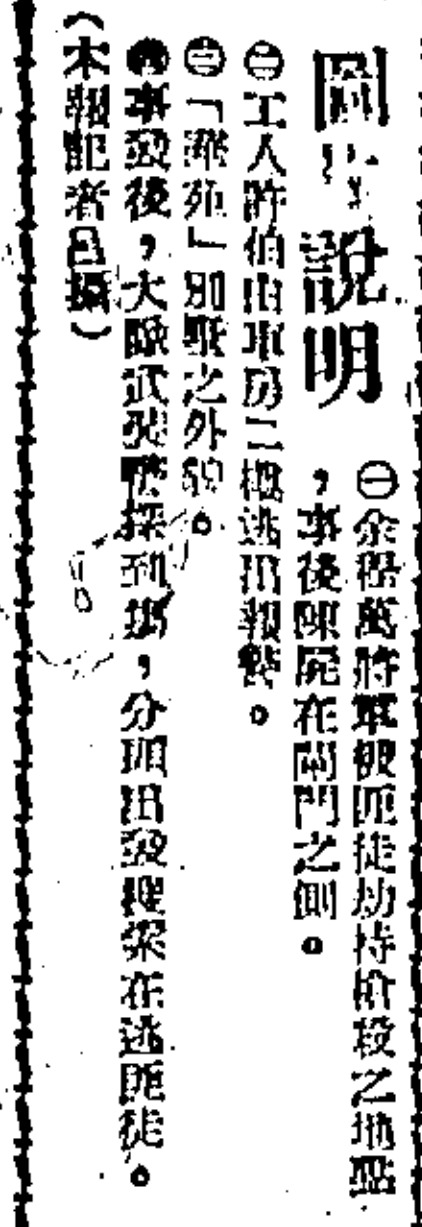 圖片說明
㊀余程萬將軍被匪徒劫持槍殺之地點
，事後陳屍在閘門之側。
㊁工人許伯由車房二樓逃出報警。
㊂「潭苑」別墅之外貌。
㊃事發後，大隊武裝警探到場，分頭出發搜索在逃匪徒。
（本報記者呂攝）